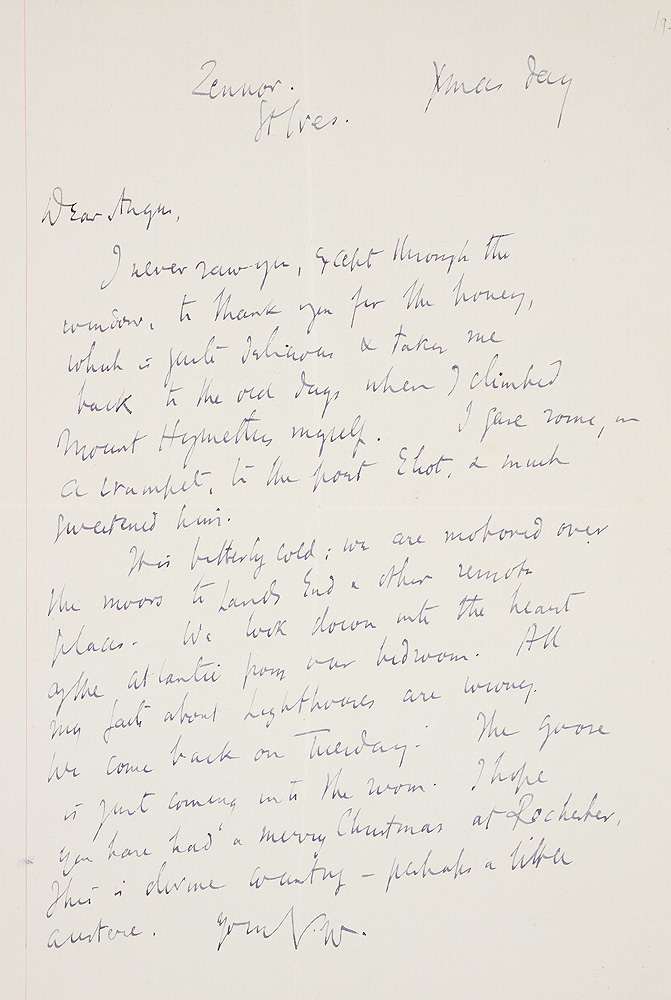 19
Zennor. Xmas day
St Ives.
Dear Angus,
I never saw you, except through the
window, to thank you for the honey,
which is quite delicious & takes me
back to the old days when I climbed
Mount Hymettus myself. I gave some, on
a crumpet, to the poet Eliot, & much
sweetened him.
It is bitterly cold; we are motored over
the moors to Lands End & other remote
places. We look down into the heart
of the Atlantic from our bedroom. All
my facts about Lighthouses are wrong.
We come back on Tuesday. The goose
is just coming into the room. I hope
you have had a merry Christmas at Rochester,
This is divine country – perhaps a little
austere. Your V.W.